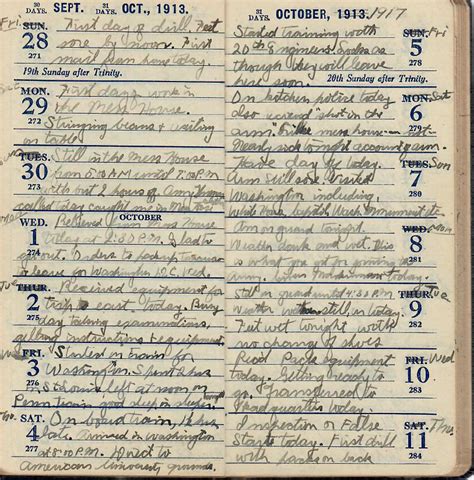 30 DAYS SEPT. 31 DAYS OCT., 1913.
Fri
SUN. 28 271
First day of drill. Feet
sore by noon. First
mail from home today.
19th Sunday after Trinity.
MON. 29 272
First day's work in
the Mess House.
Stringing beans & waiting
on table.
TUES. 30 273
Still in the Mess House
from 5:00 A.M. until 7:00 P.M.
with but 2 hours of
called today caught me in
OCTOBER
WED. 1 274
Relieved from Mess House
today at 2:30 P.M. Had to
Orders to pack up
to leave for Washington D.C. Wed.
THUR. 2 275
Received equipment for
trip east today. Busy
day
getting instructions & equipment.
FRI. 3 276
Started on train for
Washington.
St. Louis left at noon on
Penn train
SAT. 4 277
On board train,
late. Arrived in Washington
at 8:00 P.M. Hiked to
American University grounds.
31 DAYS OCTOBER, 1913. 1917
SUN. 5 278
Fri
Started training with
20th Engineers. Looks as
though they will leave
here soon.
20th Sunday after Trinity.
MON. 6 279
Sat
On kitchen police today
also second "shot in the
arm"
Nearly sick tonight account of arm.
TUES. 7 280
Sun
Have day off today.
Arm still sore. Visited
Washington including
White House, Capitol, Wash. Monument etc.
WED. 8 281
Mon
Am on guard tonight.
Weather dark and wet. This
is what you get for coming
today.
THUR. 9 282
Tue
Still on guard until 4:30 P.M.
Weather still in today.
Feet wet tonight with
no change of shoes
FRI. 10 283
Wed
Rec'd Pack equipment
today. Getting ready to
go. Transferred to
Headquarters today.
SAT. 11 284
Thu.
Inspection or False
Starts today. First drill
with packs on back